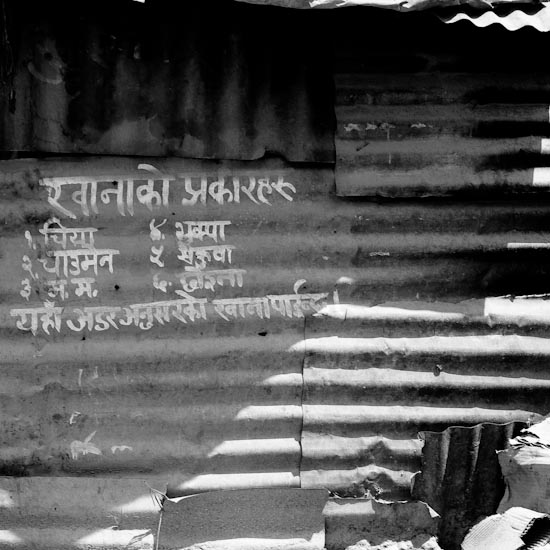 खानाको प्रकारहरू
१. चिया ४ थुक्पा
२. चाउमिन ५
३. म. म. ६.
यहाँ अडर अनुसारको खाना पाईन्छ ।